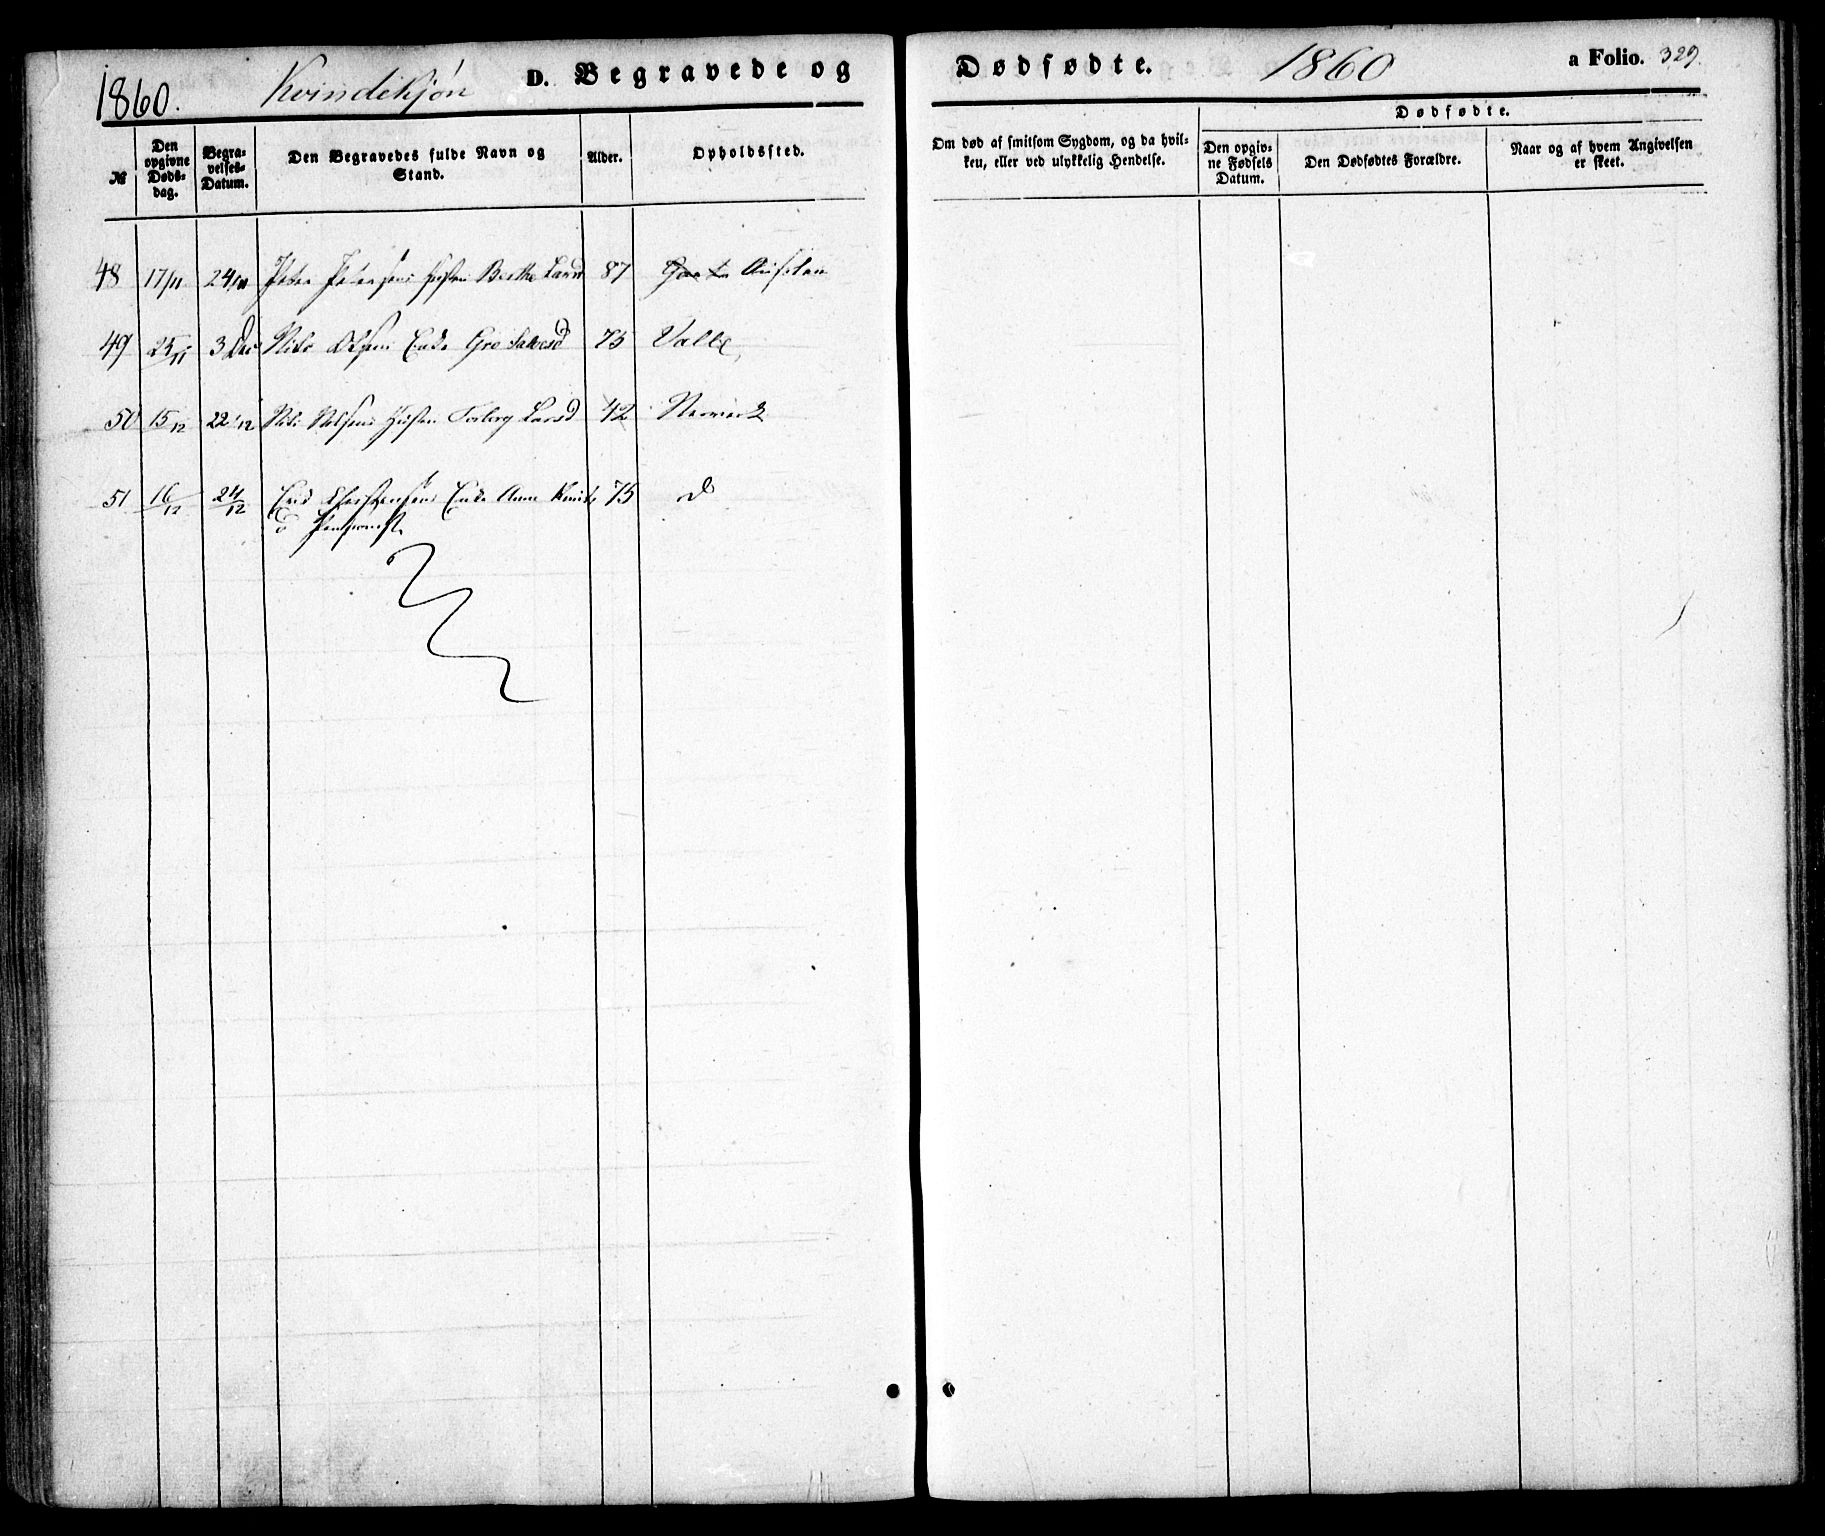 1860. Kvindekjøn D. Begravede og Dødfødte. 1860 a Folio. 329.
№
Den opgivne Døds-dag.
Begra-velses-Datum.
Den Begravedes fulde Navn og Stand.
Alder.
Opholdssted.
Om død af smitsom Sygdom, og da hvil-ken, eller ved ulykkelig Hendelse.
Dødfødte.
Den opgiv-ne Fødsels Datum.
Den Dødfødtes Forældre.
Naar og af hvem Angivelsen er skeet.
48 17/11 24/11 Peder Pedersens Husten Berthe Larsd 87
49 25/11 3 Dec Nils Olsens Enke Gro Salvesd 75 Valle
50 15/12 22/12 Nils Nilsens Husten Torborg Larsd 42
51 16/12 24/12 Enke Anne Knuts 75 d
d